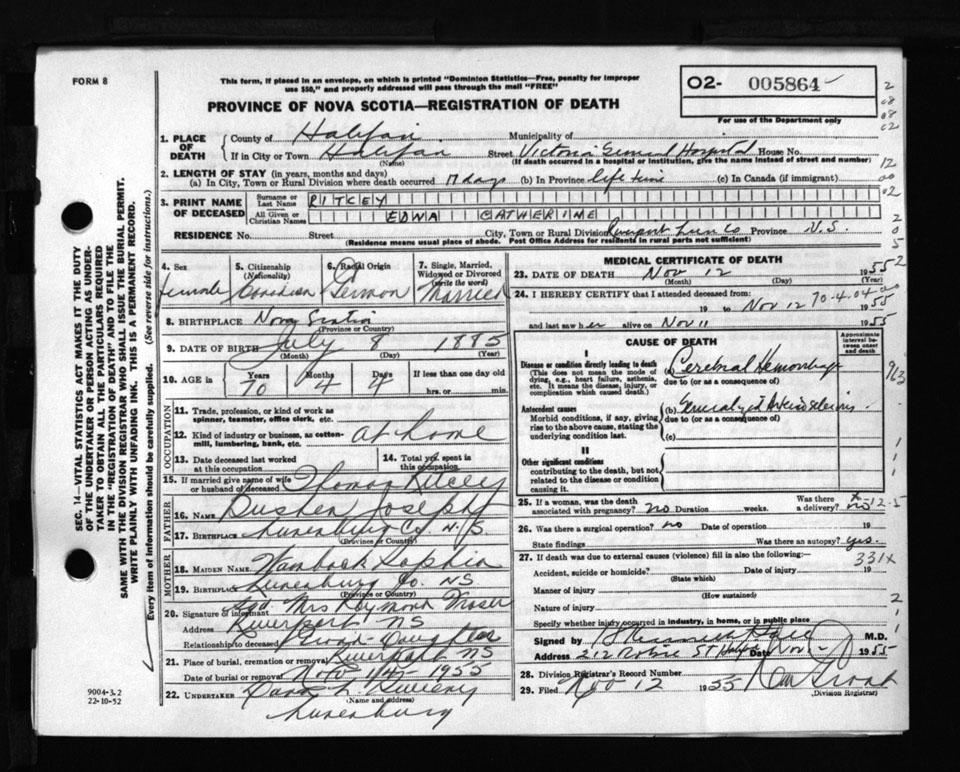 FORM 8
This form, if placed in an envelope, on which is printed "Dominion Statistics—Free, penalty for improper
use $50," and properly addressed will pass through the mail "FREE"
PROVINCE OF NOVA SCOTIA—REGISTRATION OF DEATH
02- 005864
For use of the Department only
SEC. 14—VITAL STATISTICS ACT MAKES IT THE DUTY
OF THE UNDERTAKER OR PERSON ACTING AS UNDER-
TAKER TO OBTAIN ALL THE PARTICULARS REQUIRED
IN THE "REGISTRATION OF DEATH" AND TO FILE THE
SAME WITH THE DIVISION REGISTRAR WHO SHALL ISSUE THE BURIAL PERMIT.
WRITE PLAINLY WITH UNFADING INK. THIS IS A PERMANENT RECORD.
Every item of information should be carefully supplied. (See reverse side for instructions.)
1. PLACE OF DEATH
County of Halifax Municipality of
If in City or Town Halifax Street Victoria General Hospital House No.
(Name) (If death occurred in a hospital or institution, give the name instead of street and number)
2. LENGTH OF STAY (in years, months and days)
(a) In City, Town or Rural Division where death occurred 17 days (b) In Province life time (c) In Canada (if immigrant)
3. PRINT NAME OF DECEASED
Surname or Last Name RITCEY
All Given or Christian Names EDNA CATHERINE
RESIDENCE No. Street City, Town or Rural Division Riverport Lun Co Province N.S.
(Residence means usual place of abode. Post Office Address for residents in rural parts not sufficient)
4. Sex female
5. Citizenship (Nationality) Canadian
6. Racial Origin German
7. Single, Married, Widowed or Divorced (write the word) Married
8. BIRTHPLACE Nova Scotia
(Province or Country)
9. DATE OF BIRTH July 8 1885
(Month) (Day) (Year)
10. AGE in Years 70 Months 4 Days 4 If less than one day old
hrs. or min.
OCCUPATION
11. Trade, profession, or kind of work as
spinner, teamster, office clerk, etc.
12. Kind of industry or business, as cotton-
mill, lumbering, bank, etc. at home
13. Date deceased last worked
at this occupation
14. Total yrs. spent in
this occupation
15. If married give name of wife
or husband of deceased Thomas Ritcey
FATHER
16. NAME Joseph
17. BIRTHPLACE Lunenburg Co. N.S
(Province or Country)
MOTHER
18. MAIDEN NAME Wamback Sophia
19. BIRTHPLACE Lunenburg Co. NS
(Province or Country)
20. Signature of informant Sgd. Mrs Raymond
Address Riverport NS
Relationship to deceased Grand-Daughter
21. Place of burial, cremation or removal NS
Date of burial or removal Nov 14th 1955
22. UNDERTAKER
(Name and address)
Lunenburg
9004-3.2
22-10-52
MEDICAL CERTIFICATE OF DEATH
23. DATE OF DEATH Nov 12 1955
(Month) (Day) (Year)
24. I HEREBY CERTIFY that I attended deceased from:
19 to Nov 12 1955
70-4-04-00
and last saw her alive on Nov 11 1955
CAUSE OF DEATH
Approximate interval between onset and death
I
Disease or condition directly leading to death
(This does not mean the mode of
dying, e.g., heart failure, asthenia,
etc. It means the disease, injury, or
complication which caused death.)
(a) Cerebral Hemorrhage
due to (or as a consequence of)
Antecedent causes
Morbid conditions, if any, giving
rise to the above cause, stating the
underlying condition last.
(b) Generalized Arteriosclerosis
due to (or as a consequence of)
(c)
II
Other significant conditions
contributing to the death, but not
related to the disease or condition
causing it.
25. If a woman, was the death
associated with pregnancy? no Duration weeks. Was there a delivery? no
26. Was there a surgical operation? no Date of operation 19
State findings Was there an autopsy? yes.
27. If death was due to external causes (violence) fill in also the following:
331x
Accident, suicide or homicide? Date of injury 19
(State which)
Manner of injury
(How sustained)
Nature of injury
Specify whether injury occurred in industry, in home, or in public place
Signed by M.D.
Address 212 Robie St Hfx Date Nov 1955
28. Division Registrar's Record Number
29. Filed Nov 12 1955
(Division Registrar)